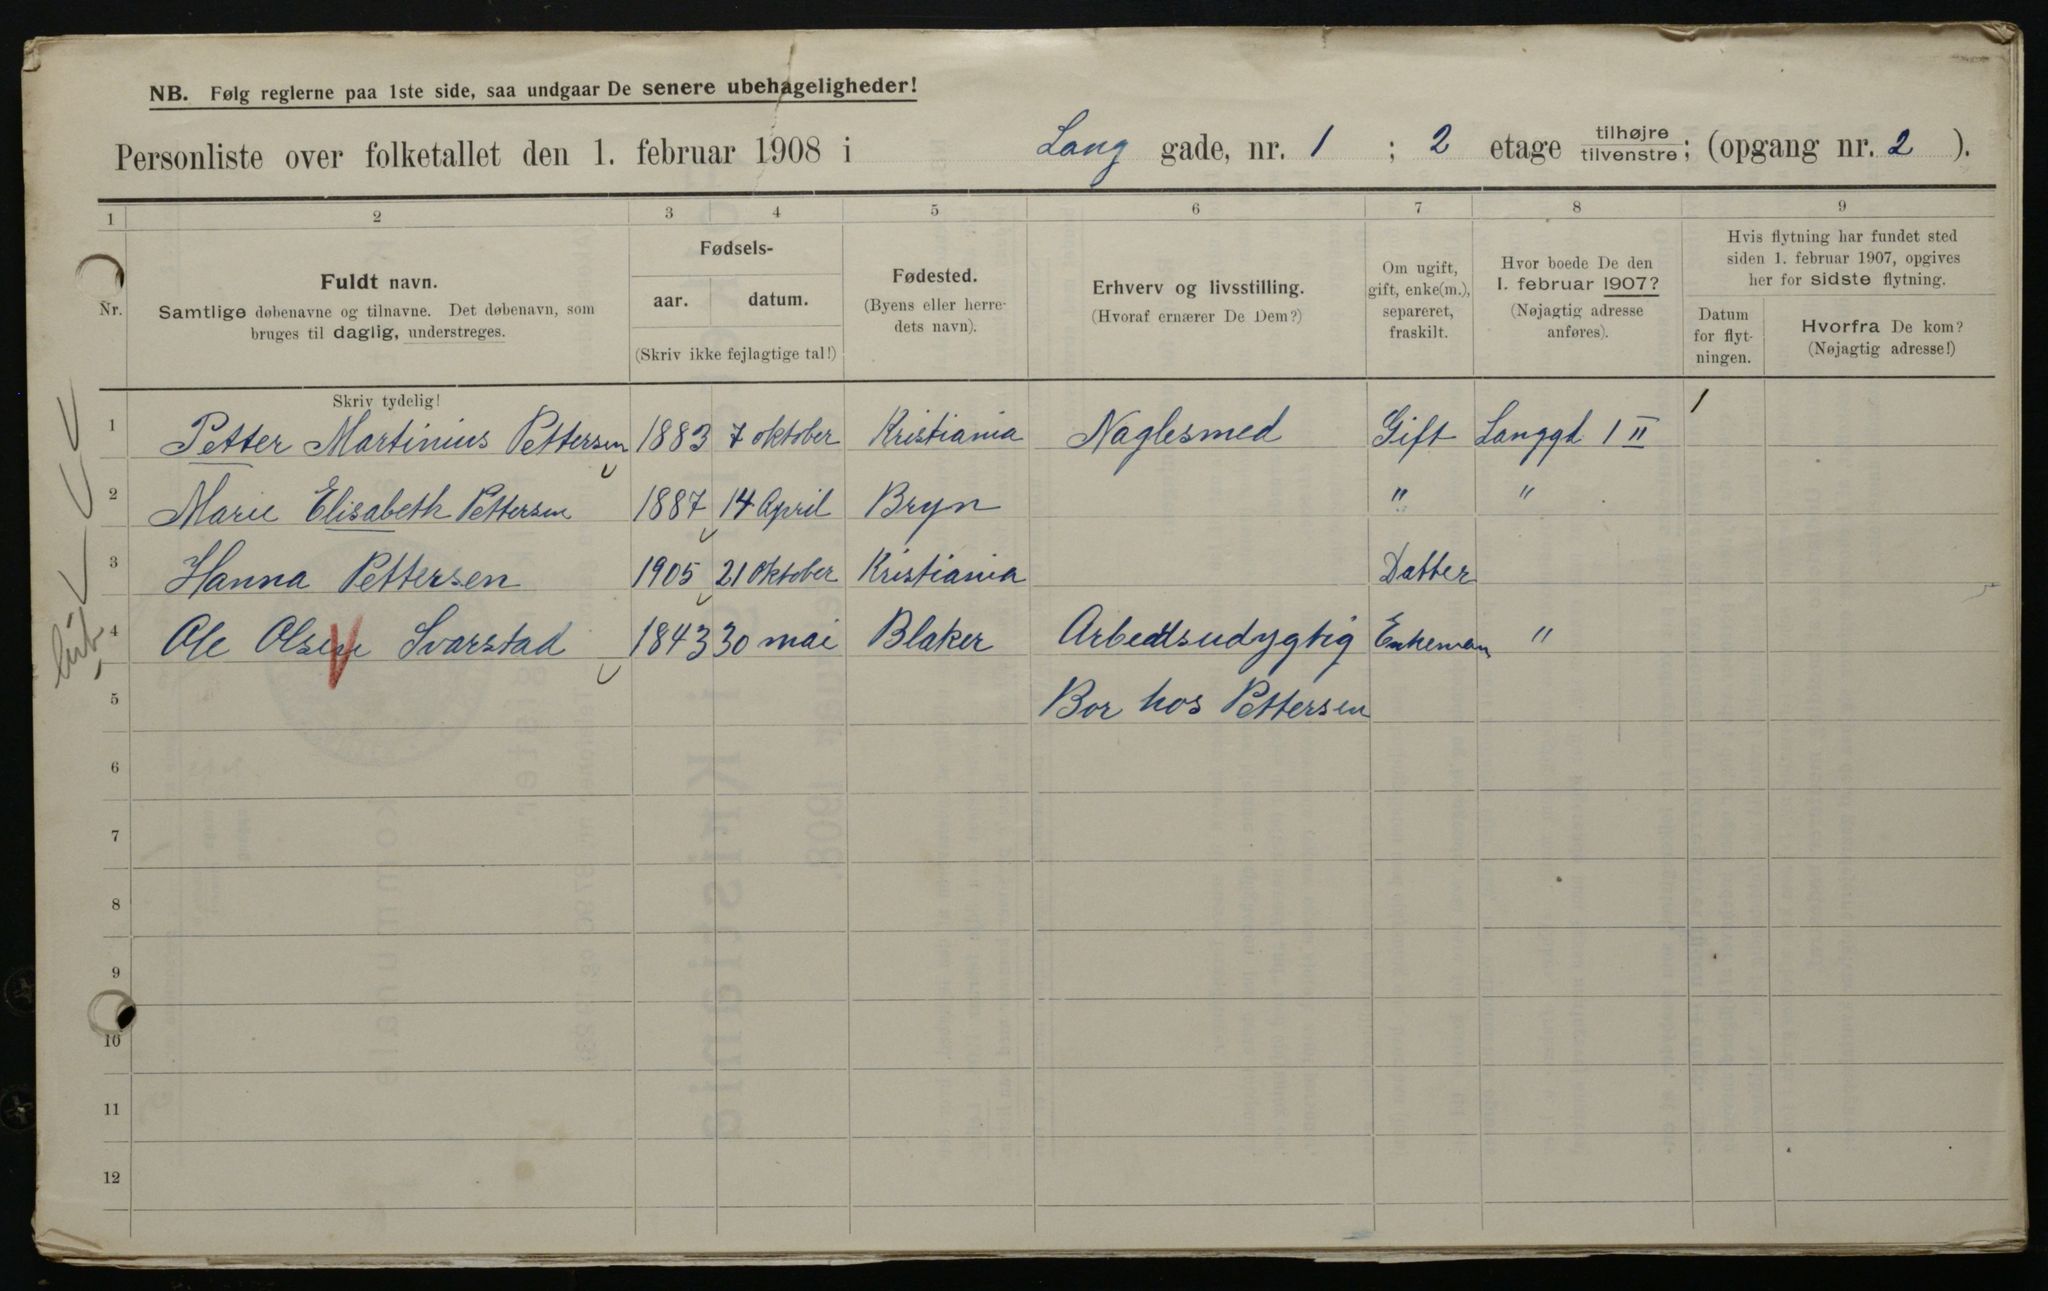 NB. Følg reglerne paa 1ste side, saa undgaar De senere ubehageligheder!
Personliste over folketallet den 1. februar 1908 i Lang gade, nr. 1 ; 2 etage tilhøjre tilvenstre; (opgang nr. 2 ).
1 2 3 4 5 6 7 8 9
Nr.
Fuldt navn.
Samtlige døbenavne og tilnavne. Det døbenavn, som
bruges til daglig, understreges.
Fødsels-
aar. datum.
(Skriv ikke fejlagtige tal!)
Fødested.
(Byens eller herre-
dets navn).
Erhverv og livsstilling.
(Hvoraf ernærer De Dem?)
Om ugift,
gift, enke(m.),
separeret,
fraskilt.
Hvor boede De den
1. februar 1907?
(Nøjagtig adresse
anføres).
Hvis flytning har fundet sted
siden 1. februar 1907, opgives
her for sidste flytning.
Datum
for flyt-
ningen.
Hvorfra De kom?
(Nøjagtig adresse!)
Skriv tydelig!
1 Petter Martinius Pettersen 1883 7 oktober Kristiania Naglesmed Gift Langgd 1 II
2 Marie Elisabeth Pettersen 1887 14 April Bryn " "
3 Hanna Pettersen 1905 21 oktober Kristiania Datter
4 Ole Olsen Svarstad 1843 30 mai Blaker Arbeidsudygtig Enkeman "
5 Bor hos Pettersen
6
7
8
9
10
11
12